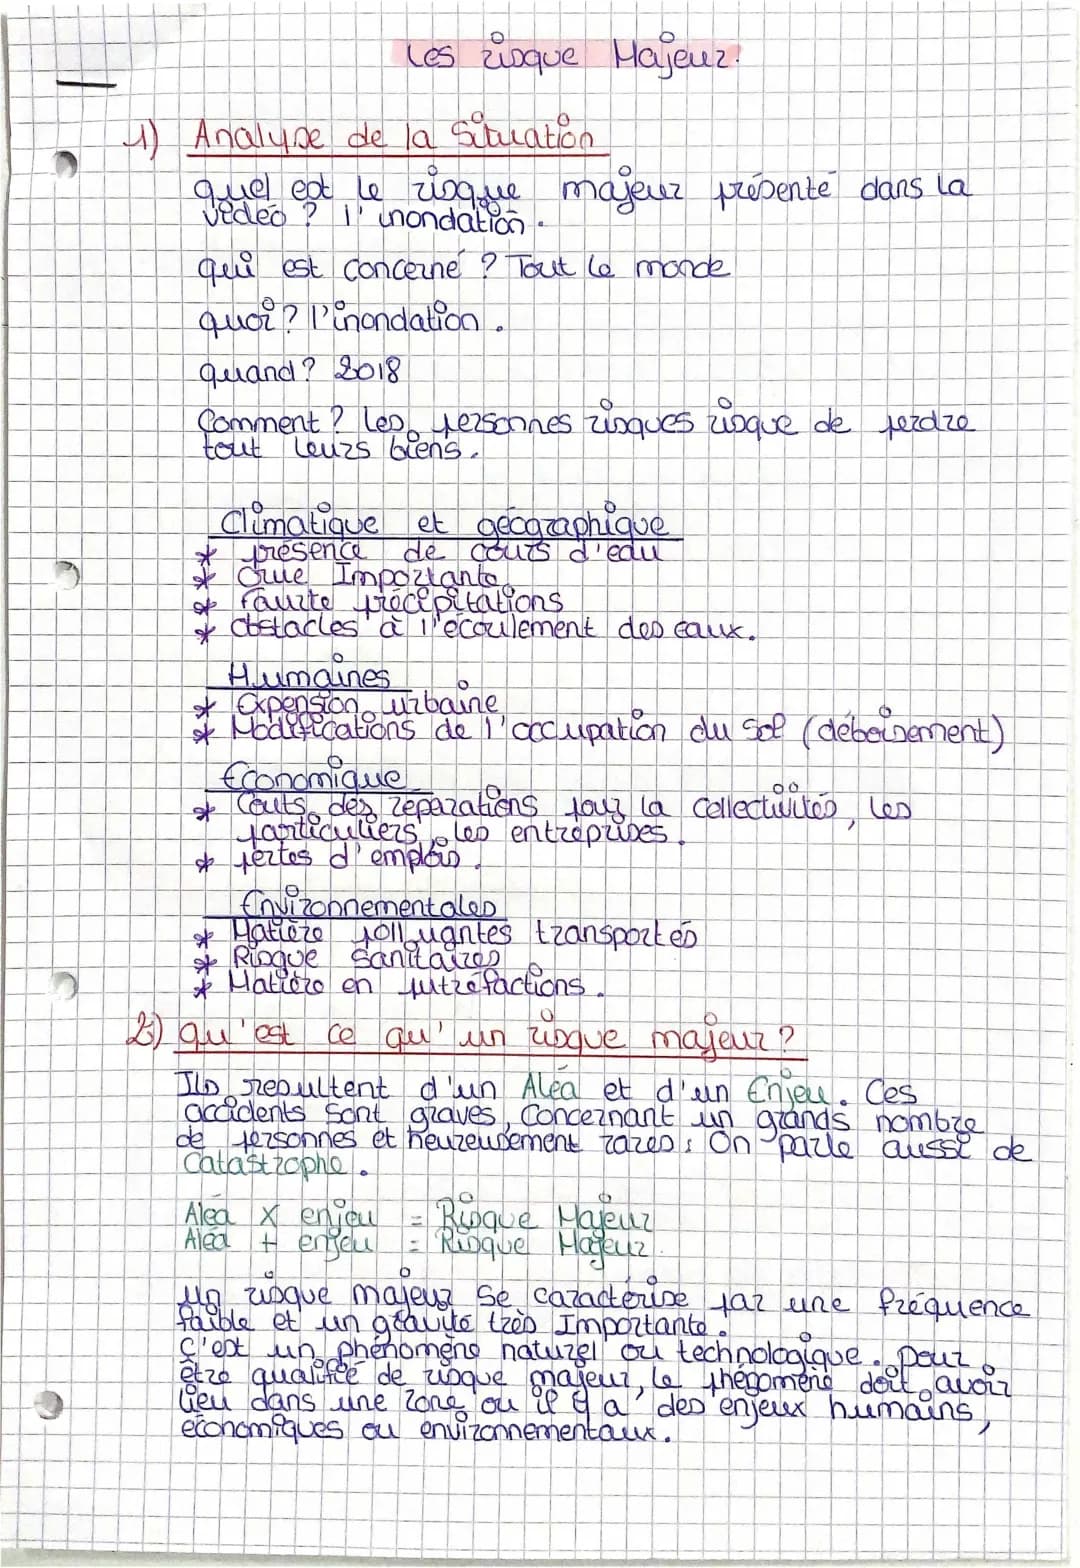 Les risque Majeur.
1) Analyse de la Situation
quel est le risque majeur présenté dans la
vedéo ? l'inondation.
qui est concerné ? Tout le monde
quoi ? l'inondation.
quand ? 2018
Comment ? les personnes risques risque de perdre
tout leurs biens.
Climatique et géographique
* présence de cours d'eau
* Crue Importante
* Faurte précipitations
* Obstacles à l'écoulement des eaux.
Humaines
* Expension urbaine
* Modifications de l'occupation du sol (déboisement)
économique
* Couts des réparations pour la collectivités, les
particuliers, les entreprises.
* pertes d'emplois.
Environnementales
* Matière polluantes transportés
* Risque sanitaires
* Matière en putréfactions.
2) qu'est ce qu'un risque majeur ?
Ils resultent d'un Aléa et d'un Enjeu. Ces
accidents sont graves, concernant un grands nombre
de personnes et heureusement rares : On parle aussi de
Catastrophe.
Aléa x enjeu = Risque Majeur
Aléa + enjeu = Risque Majeur.
un risque majeur se caractérise par une fréquence
faible et un gravité très Importante.
C'est un phénomène naturel ou technologique. pour
être qualifié de risque majeur, le phégomène doit avoir
lieu dans une zone ou il y a des enjeux humains,
économiques ou environnementaux.